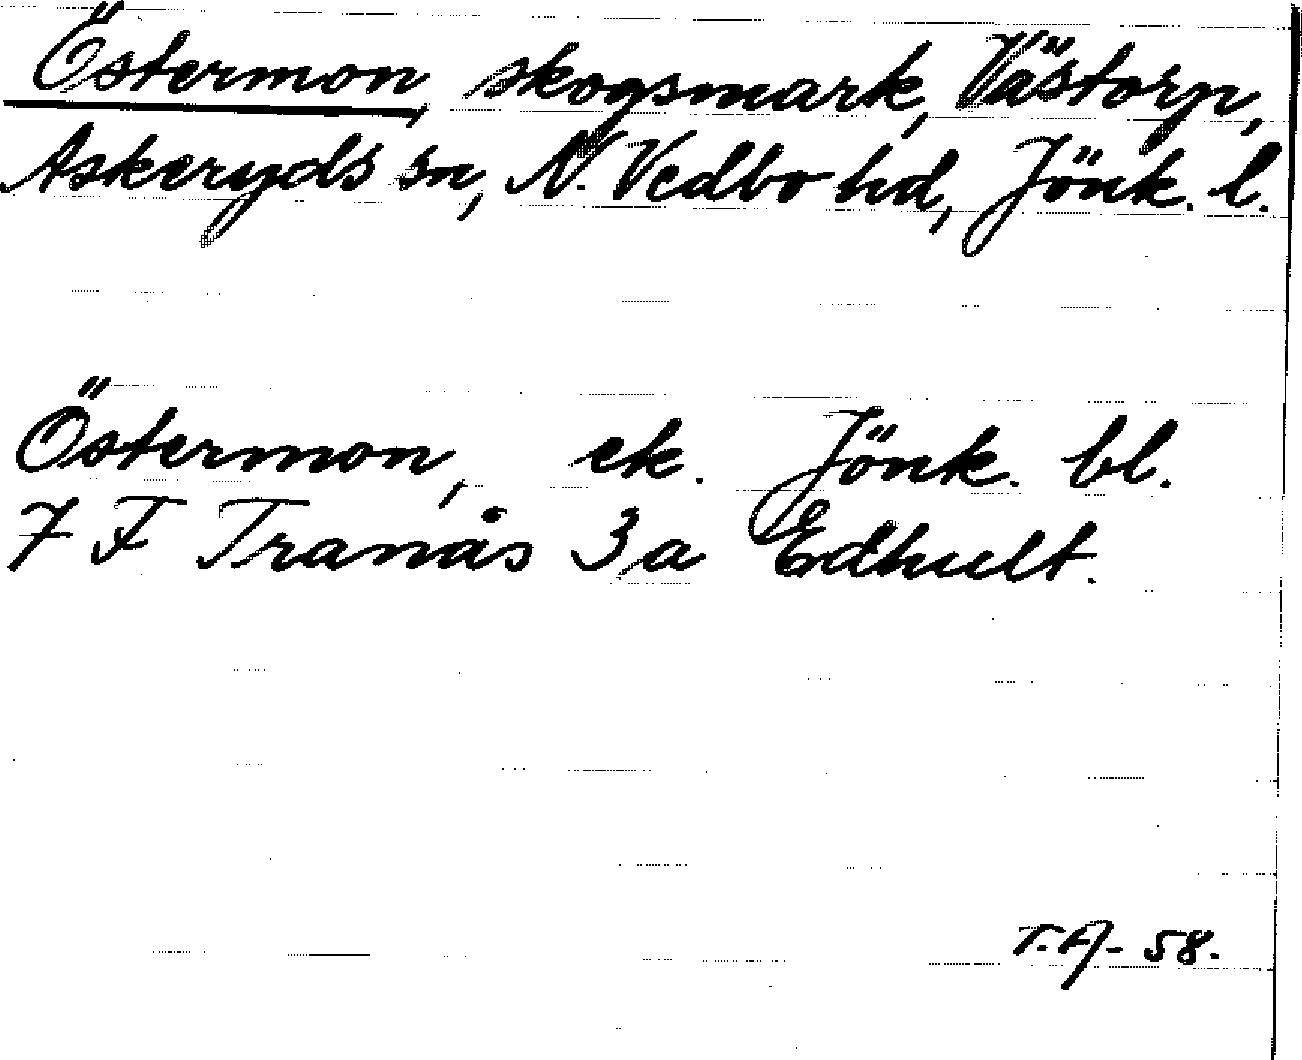 Östermon, skogsmark, Västorp,
Askeryds sn, N. Vedbo hd, Jönk. l.
Östermon, ek. Jönk. bl.
7 F Tranås 3 a Edhult.
T.A- 58.